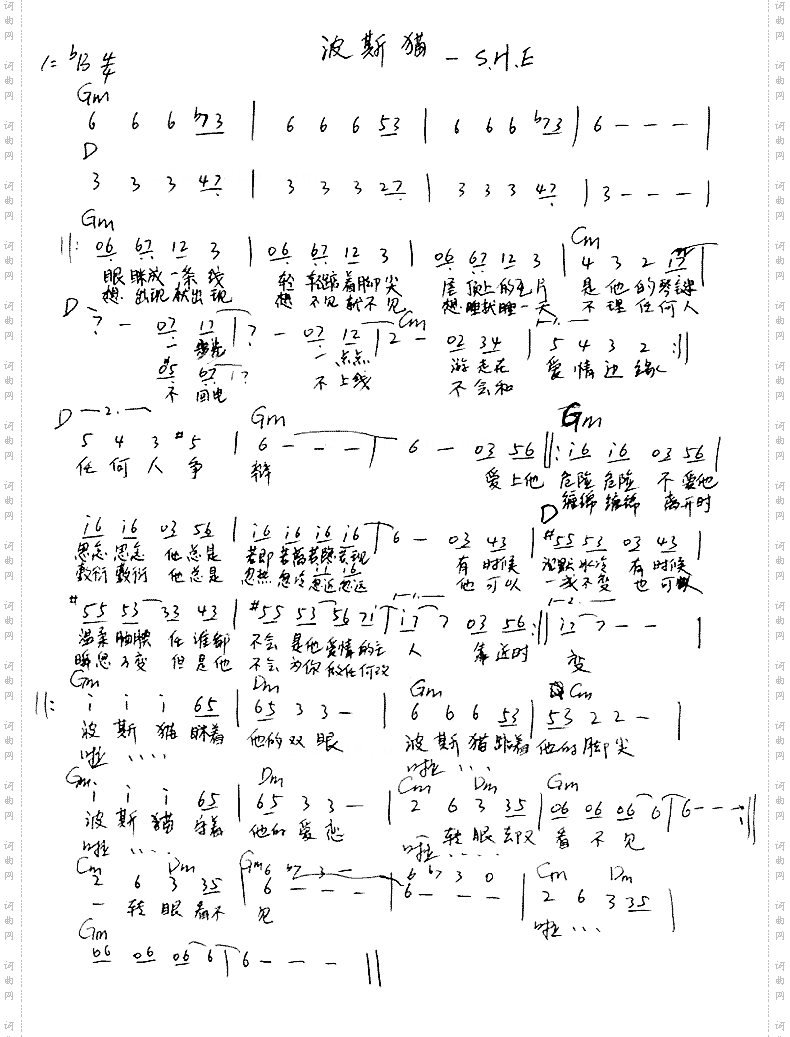 波斯猫 - S.H.E
1=ᵇB 4/4
Gm
6 6 6 ♭73 | 6 6 6 53 | 6 6 6 ♭73 | 6 - - - |
D
3 3 3 47 | 3 3 3 27 | 3 3 3 47 | 3 - - - |
Gm Cm
||: 06 67 12 3 | 06 67 12 3 | 06 67 12 3 | 4 3 2 17 |
眼睛放一条线 轻轻踮着脚尖 屋顶上的瓦片 是他的琴键
想出现就出现 想不见就不见 想睡就睡一天 不理任何人
D Cm
7 - 07 17 | 7 - 07 12 | 2 - 02 34 | 5 4 3 2 :||
一步步 一点点 游走在 爱情边缘
05 67 17
不回电 不上线 不会和
D Gm Gm
5 4 3 #5 | 6 - - - | 6 - 03 56 ||: i6 i6 03 56 |
任何人争 辩 爱上他 危险危险 不爱他
缠绵缠绵 离开时
D
i6 i6 03 56 | i6 i6 i6 i6 | 6 - 03 43 | #55 53 03 43 |
思念思念 他总是 若即若离若隐若现 有时候 沉默冰冷 有时候
敷衍敷衍 他总是 忽热忽冷忽近忽远 他可以 一成不变 也可以
#55 53 33 43 | #55 53 56 7i | i7 7 03 56 :|| i7 7 - - |
温柔腼腆 任谁都 不会是他爱情的主 人 靠近时 变
瞬息万变 但是他 不会为你做任何改
Gm Dm Gm Cm
||: i i i 65 | 65 3 3 - | 6 6 6 53 | 53 2 2 - |
波斯猫眯着 他的双眼 波斯猫踮着 他的脚尖
啦.... 啦...
Gm Dm Cm Dm Gm
i i i 65 | 65 3 3 - | 2 6 3 35 | 06 06 06 6 | 6 - - - :||
波斯猫守着 他的爱恋 一转眼却又 看不见
啦.... 啦....
Cm Dm Gm Cm Dm
2 6 3 35 | 6 - - - | 6 - - - | 2 6 3 35 |
6 ♭7 3 - 6 ♭7 3 0
一转眼看不 见 啦...
Gm
06 06 06 6 | 6 - - - ||
词曲网